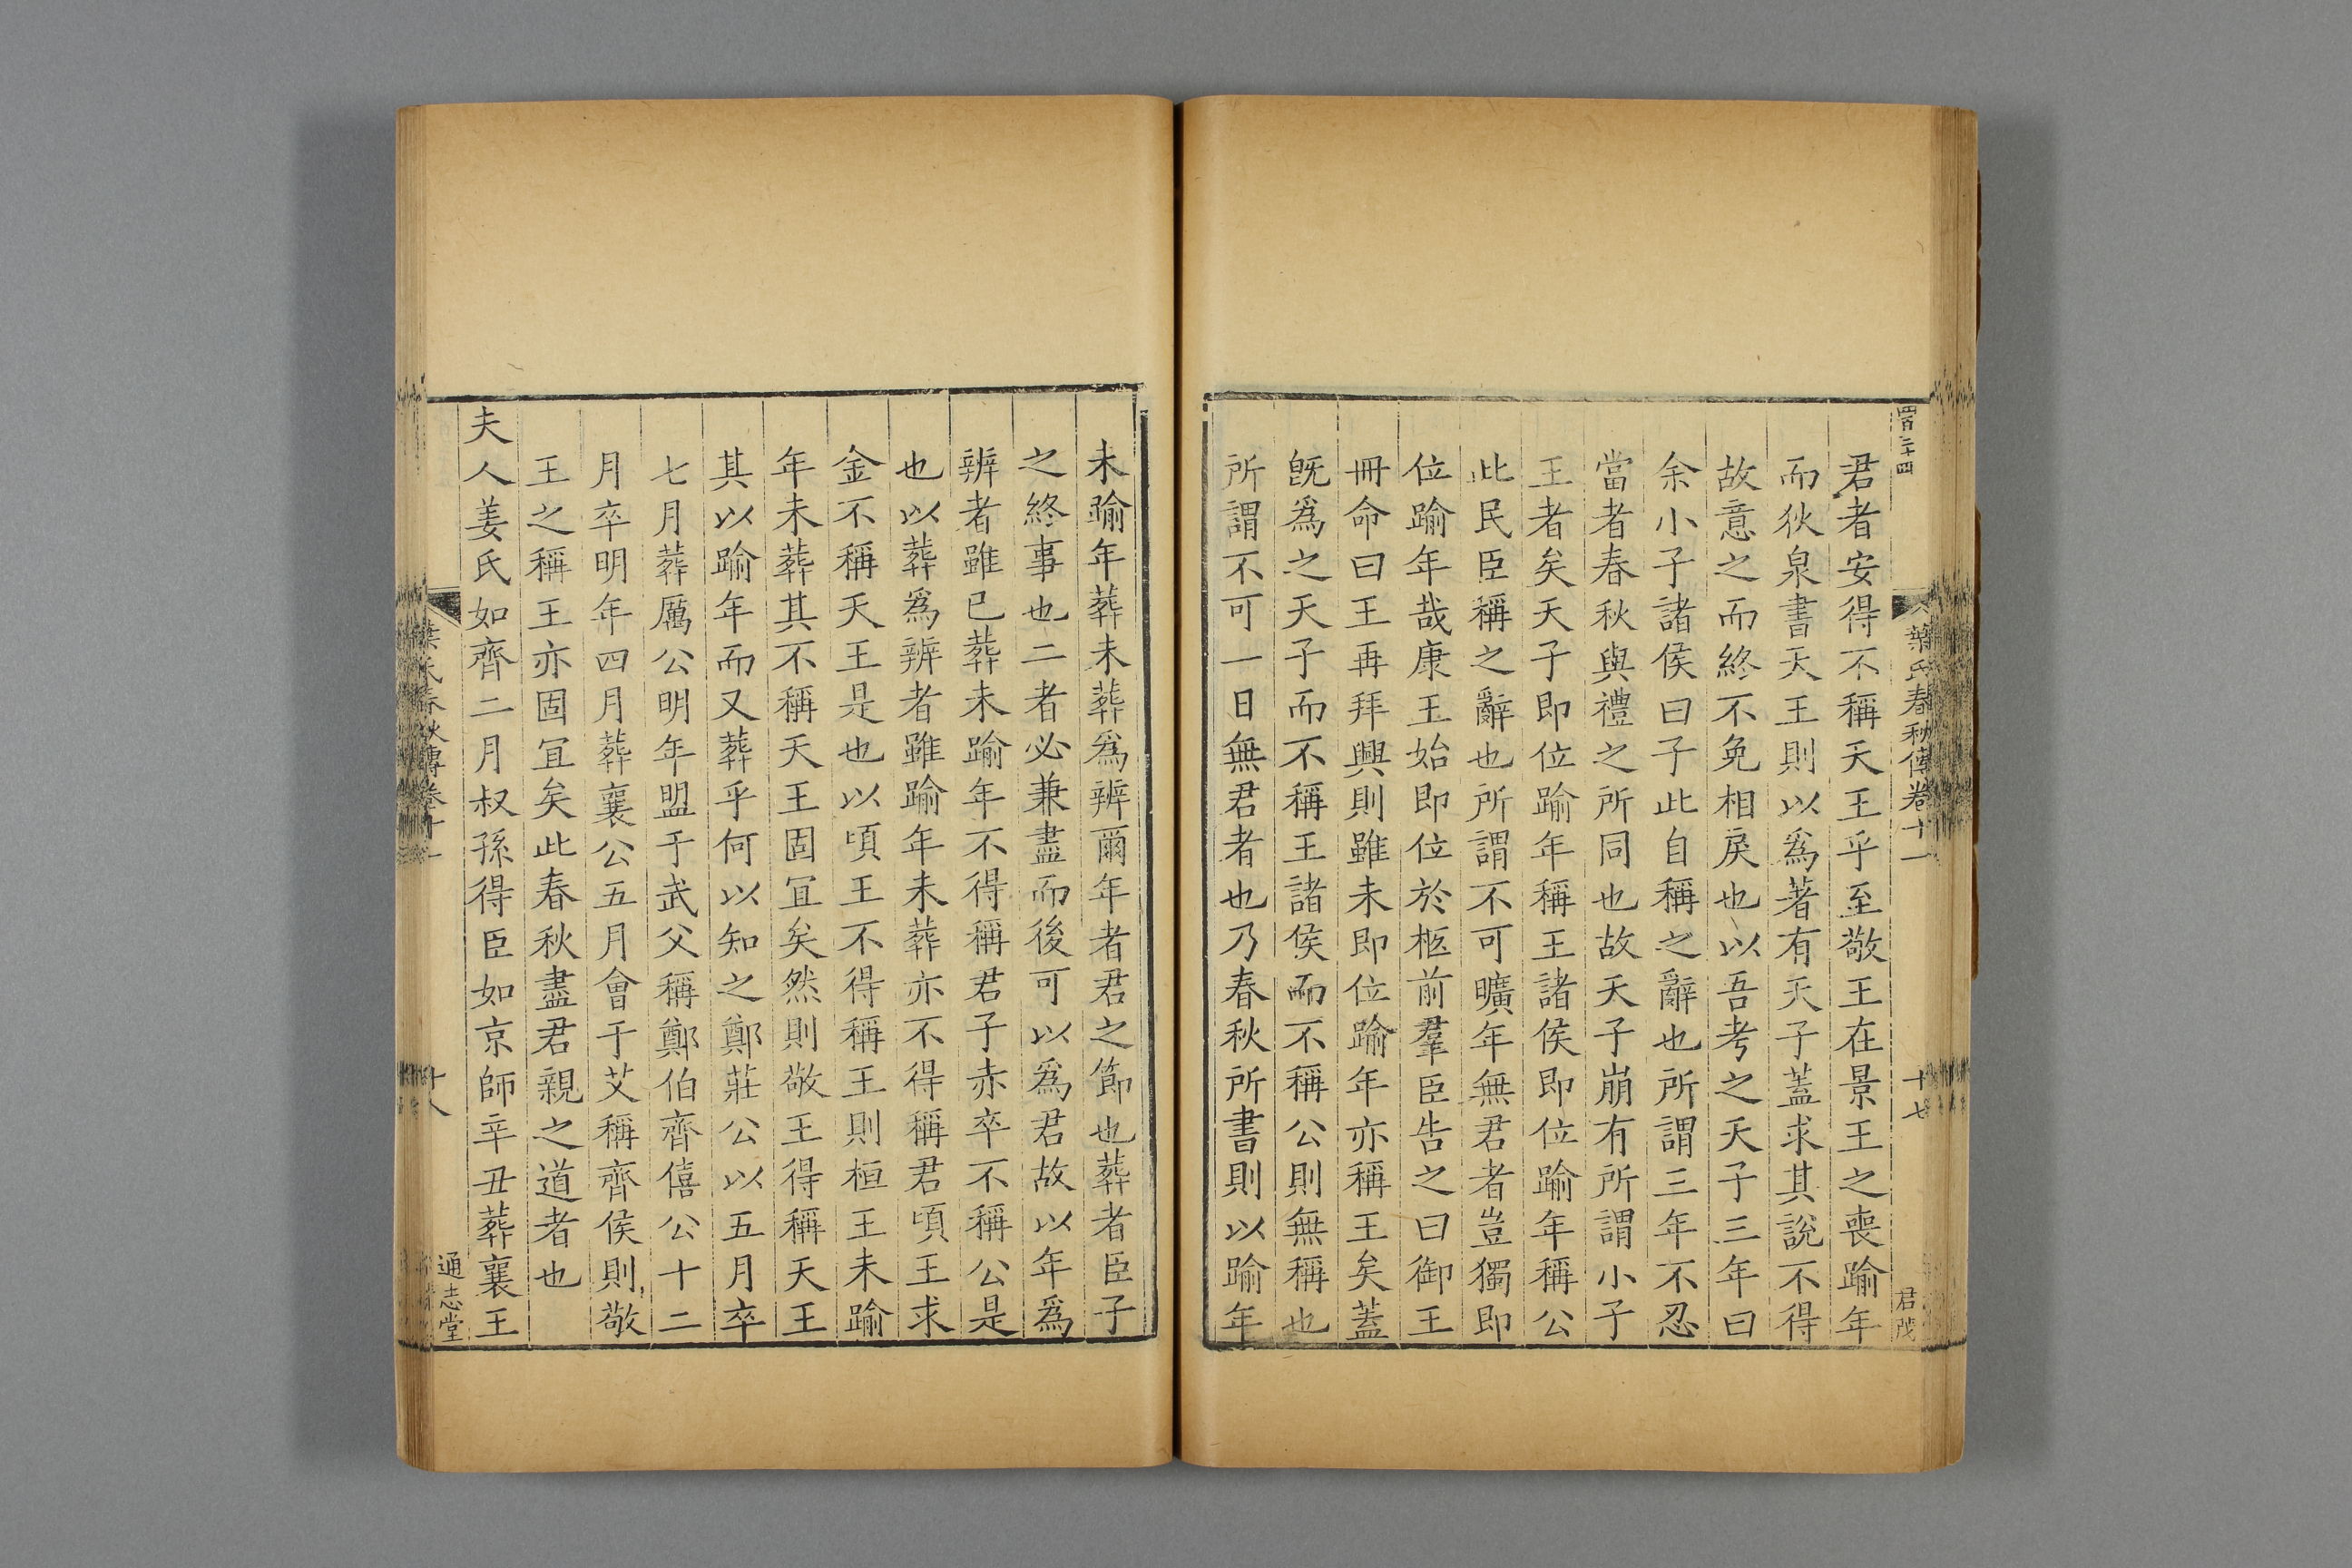 四百二十四
葉氏春秋傳卷十一
十七
君茂
君者安得不稱天王乎至敬王在景王之喪踰年
而狄泉書天王則以爲著有天子蓋求其說不得
故意之而終不免相戾也以吾考之天子三年曰
余小子諸侯曰子此自稱之辭也所謂三年不忍
當者春秋與禮之所同也故天子崩有所謂小子
王者矣天子即位踰年稱王諸侯即位踰年稱公
此民臣稱之辭也所謂不可曠年無君者豈獨即
位踰年哉康王始即位於柩前羣臣告之曰御王
冊命曰王再拜興則雖未即位踰年亦稱王矣蓋
旣爲之天子而不稱王諸侯而不稱公則無稱也
所謂不可一日無君者也乃春秋所書則以踰年
未踰年葬未葬爲辨爾年者君之節也葬者臣子
之終事也二者必兼盡而後可以爲君故以年爲
辨者雖已葬未踰年不得稱君子赤卒不稱公是
也以葬爲辨者雖踰年未葬亦不得稱君頃王求
金不稱天王是也以頃王不得稱王則桓王未踰
年未葬其不稱天王固宜矣然則敬王得稱天王
其以踰年而又葬乎何以知之鄭莊公以五月卒
七月葬厲公明年盟于武父稱鄭伯齊僖公十二
月卒明年四月葬襄公五月會于艾稱齊侯則敬
王之稱王亦固宜矣此春秋盡君親之道者也
夫人姜氏如齊二月叔孫得臣如京師辛丑葬襄王
葉氏春秋傳卷十一
十八
通志堂